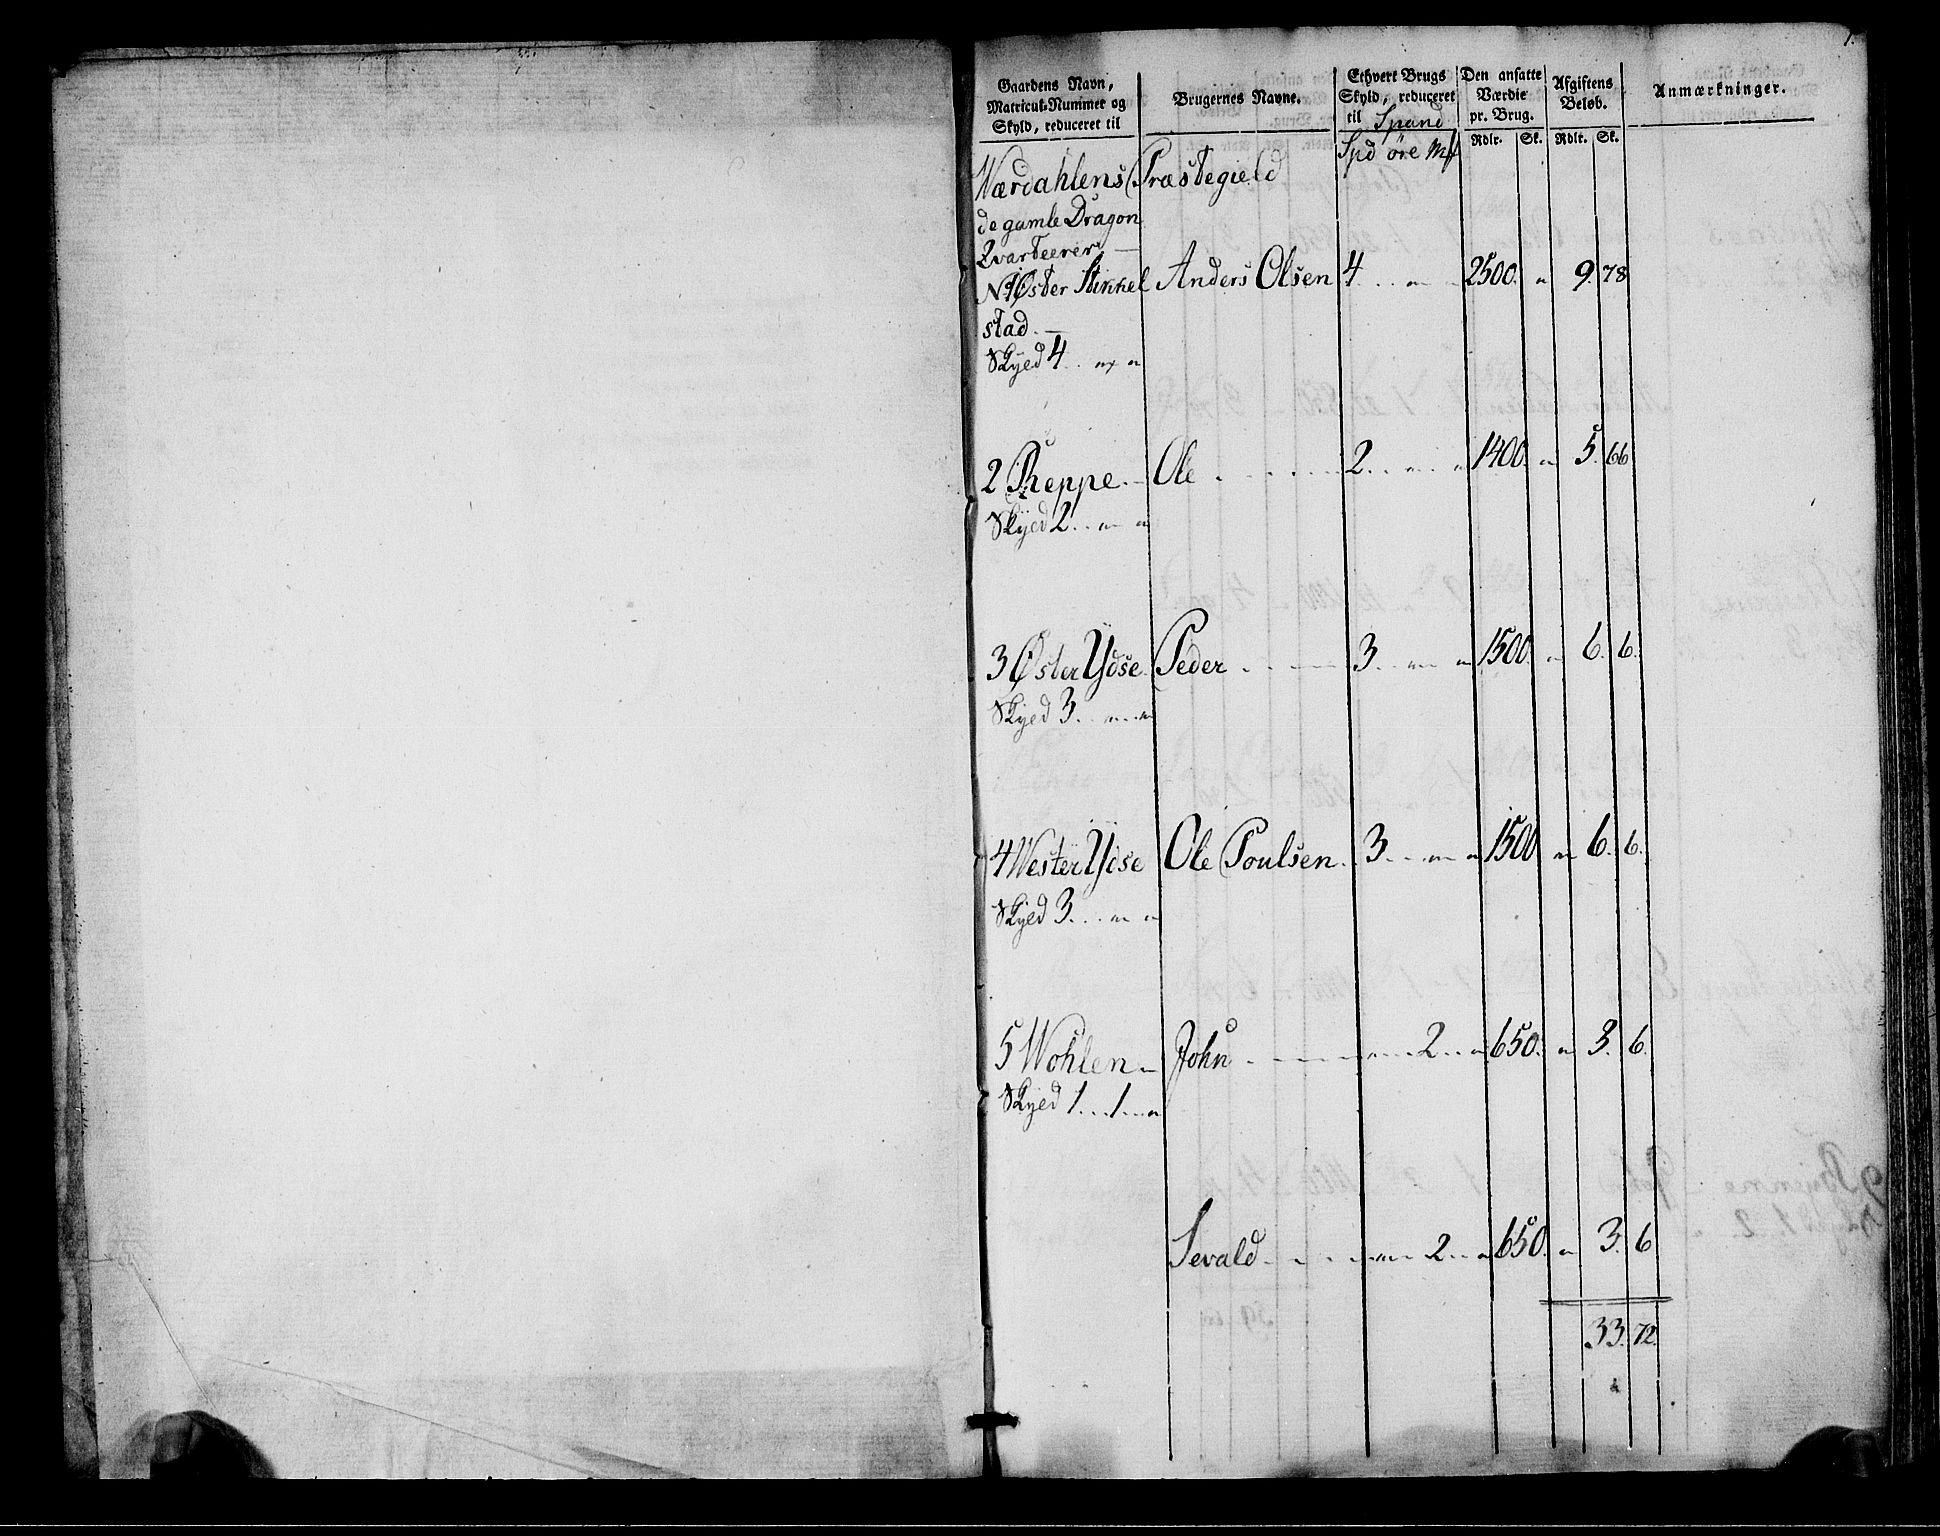 1.
Gaardens Navn, Matricul-Nummer og Skyld, reduceret til
Brugernes Navne.
Ethvert Brugs Skyld, reduceret til Spand
Den ansatte Værdie pr. Brug.
Afgiftens Beløb.
Anmærkninger.
Spd öre Mk
Rdlr. Sk. Rdlr. Sk.
Værdahlens Præstegield
de gamle Dragon
Qvarteerer —
No 1 Øster Stikkel Anders Olsen 4 . . „ „ 2500. „ 9. 78
stad. —
Skyed 4 . . „ „
2 Reppe. — Ole . . . . . 2. . „ „ 1400. „ 5. 66
Skyed 2. . „ „
3 Øster Ydse Peder . . . 3. . „ „ 1500. „ 6. 6.
Skyed 3. . „ „
4 Wester Ydse Ole Poulsen . 3. . „ „ 1500 „ 6. 6.
Skyed 3. . . „ „
5 Wohlen „ John . . . . „ 2. . „ 650. „ 3. 6.
Skyed 1. . 1. . „
Sevald . . . . „ 2. . „ 650. „ 3. 6
33. 72.